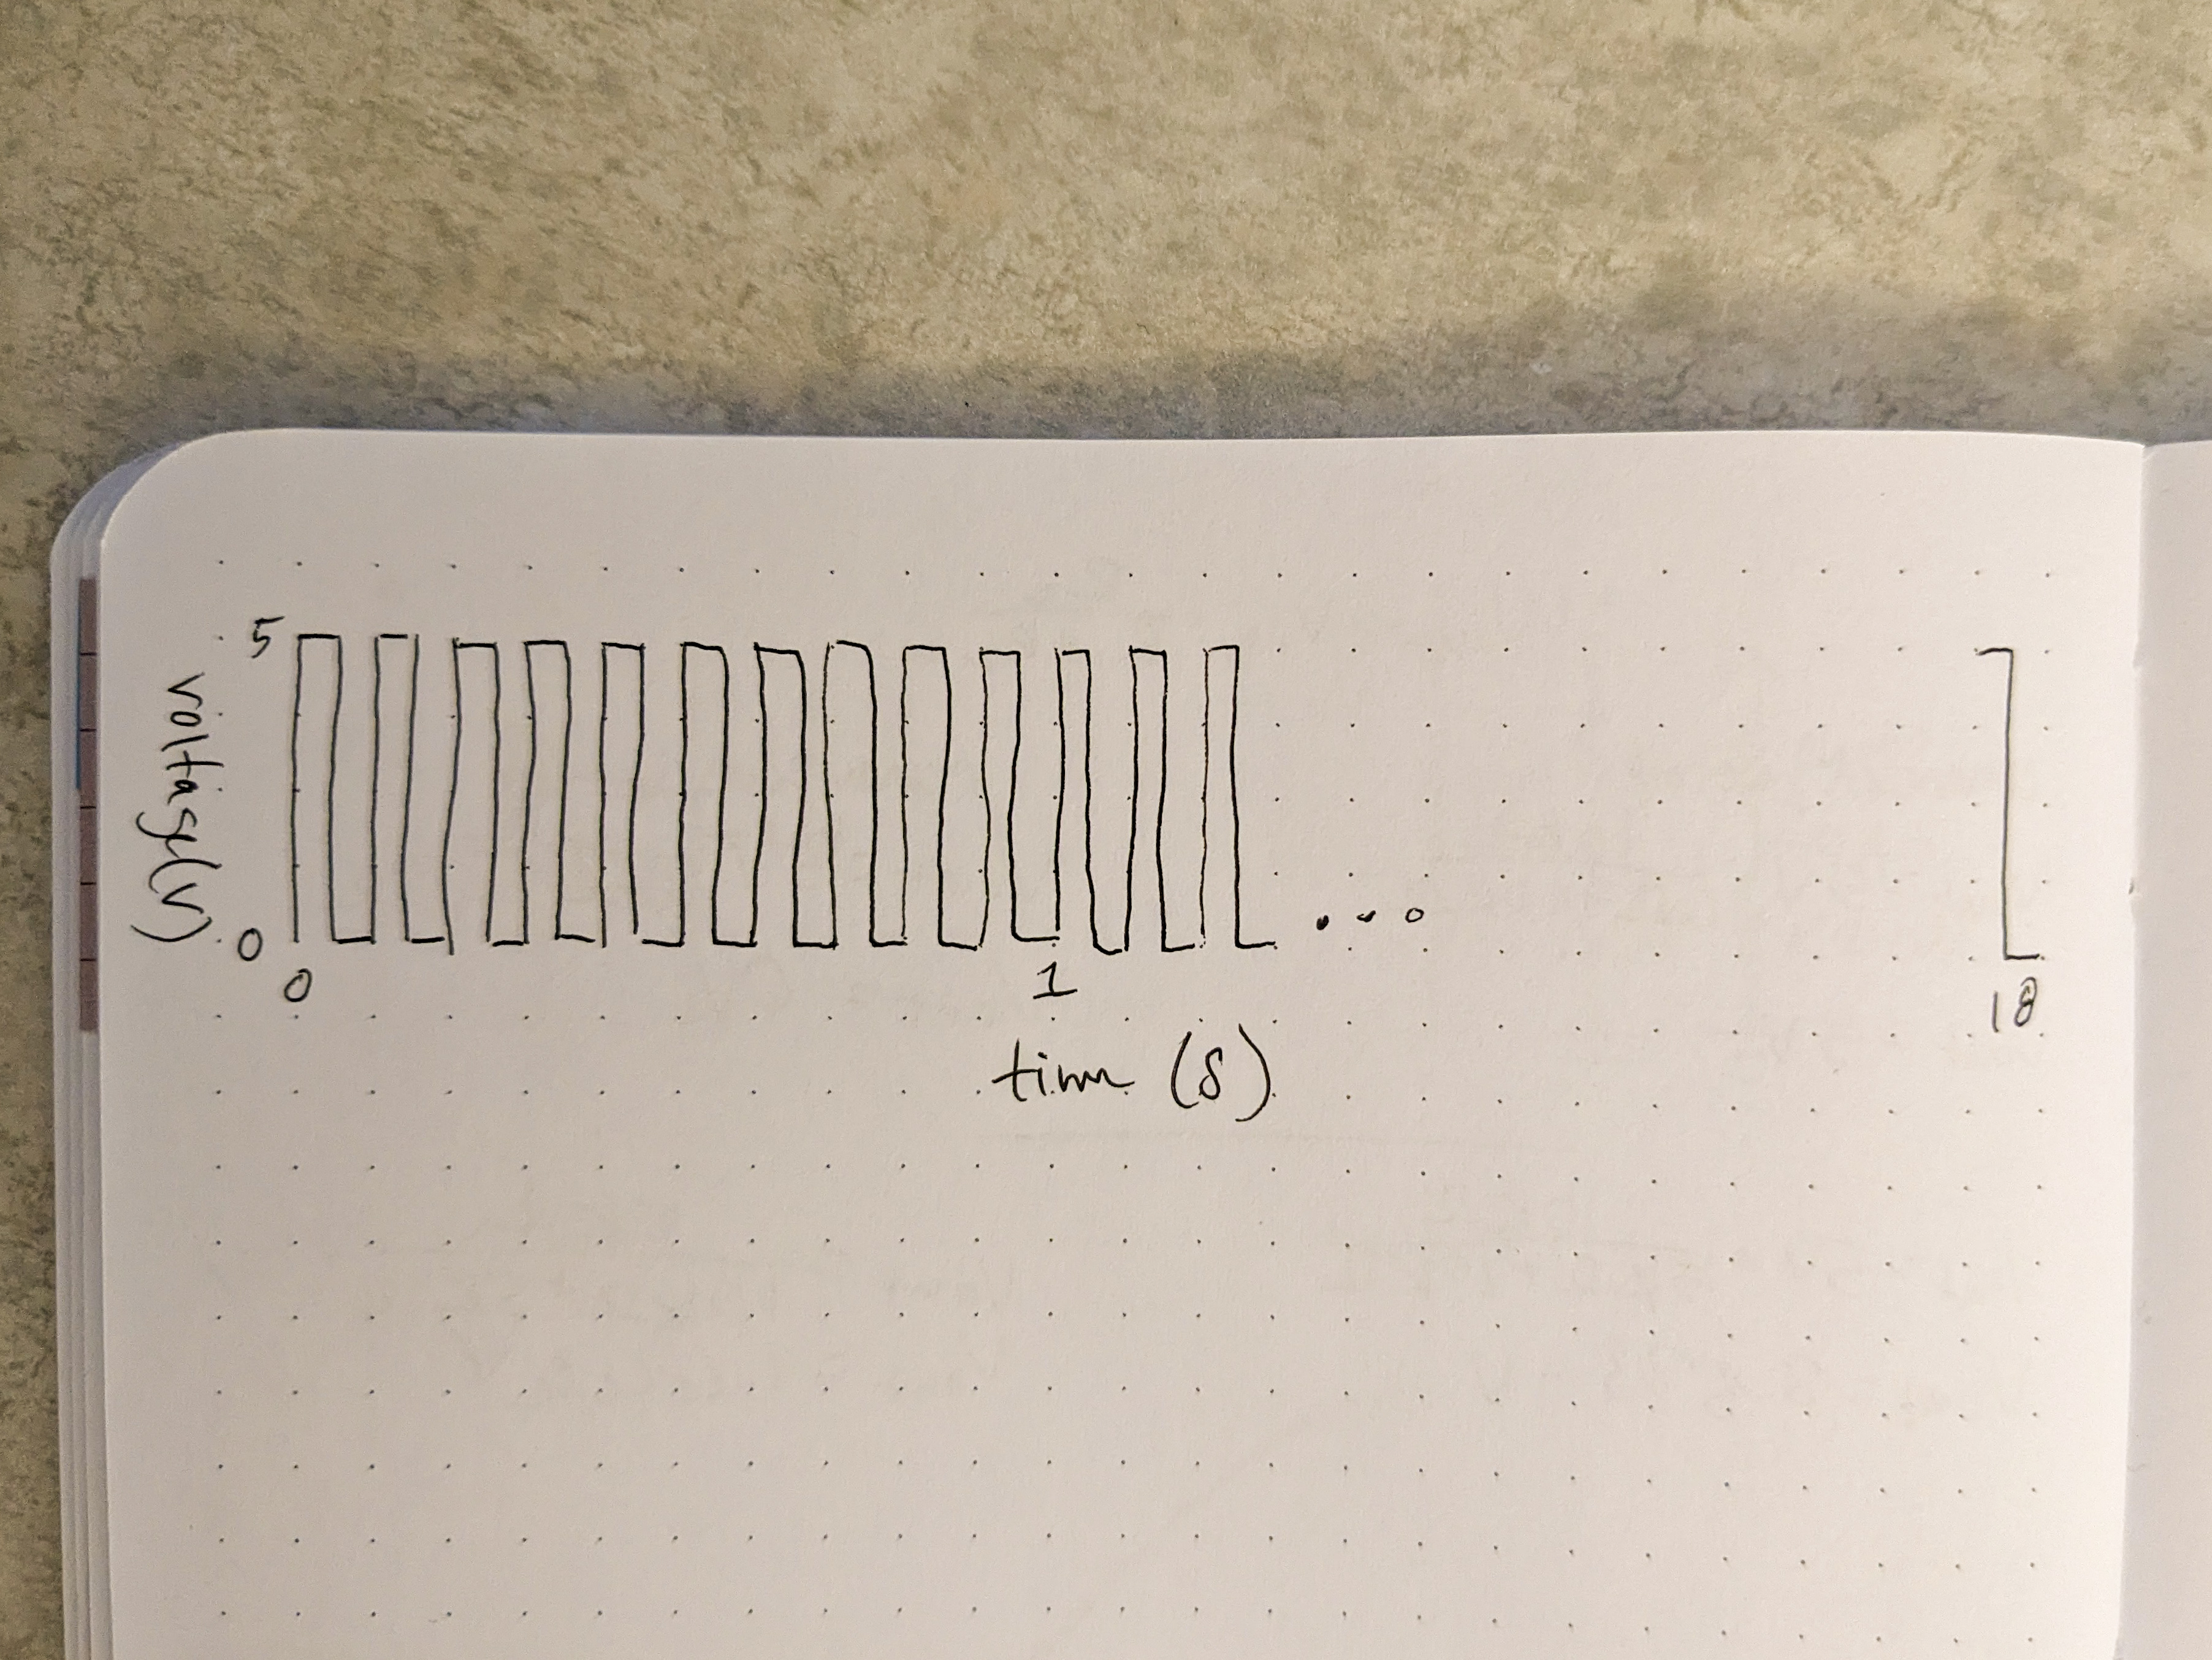 5
voltage(V)
0
0 1 18
time (s)